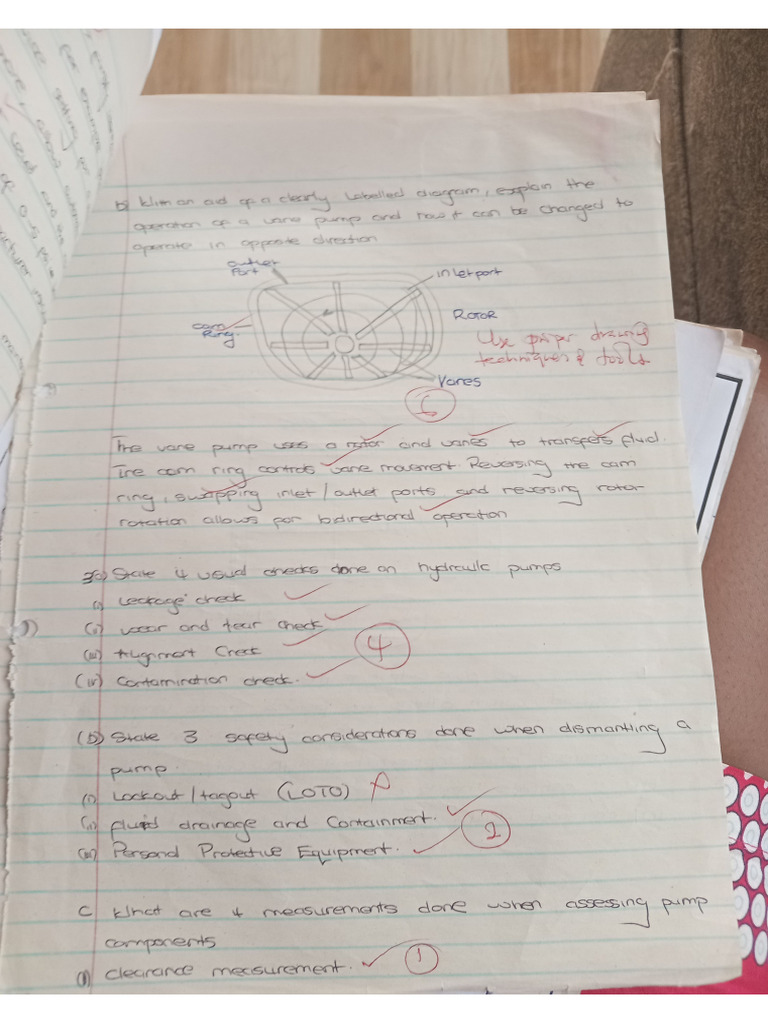 b) With an aid of a clearly labelled diagram, explain the
operation of a vane pump and how it can be changed to
operate in opposite direction
outlet
Port
inlet port
cam
Ring
ROTOR
Use proper drawing
techniques & tools
Vanes
6
The vane pump uses a rotor and vanes to transfers fluid.
The cam ring controls vane movement. Reversing the cam
ring, swapping inlet / outlet ports and reversing rotor
rotation allows for bidirectional operation
3a) State 4 usual checks done on hydraulic pumps
(i) Leakage check
(ii) wear and tear check
(iii) Alignment Check
(iv) Contamination check.
4
(b) State 3 safety considerations done when dismantling a
pump.
(i) Lockout / tagout (LOTO)
(ii) fluid drainage and Containment.
(iii) Personal Protective Equipment.
2
C What are 4 measurements done when assessing pump
components
(i) clearance measurement.
1